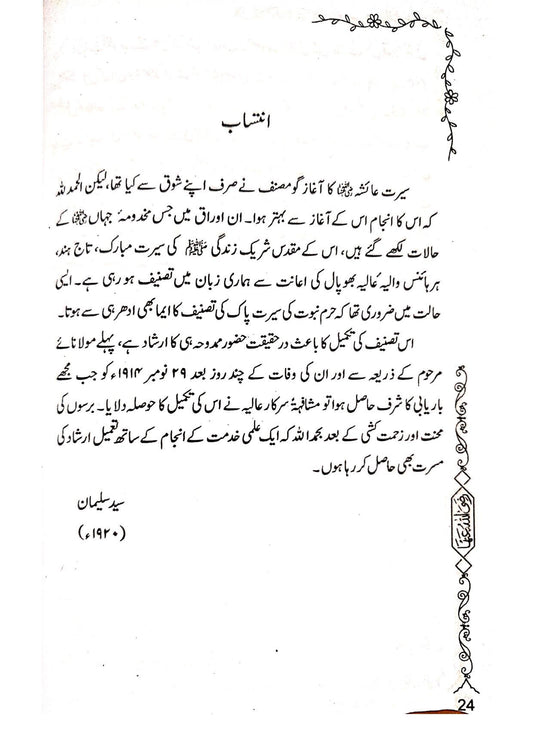 انتساب
سیرت عائشہ رضی اللہ عنہا کا آغاز گو مصنف نے صرف اپنے شوق سے کیا تھا، لیکن الحمد للہ
کہ اس کا انجام اس کے آغاز سے بہتر ہوا۔ ان اوراق میں جس مخدومۂ جہاں رضی اللہ عنہا کے
حالات لکھے گئے ہیں، اس کے مقدس شریک زندگی ﷺ کی سیرت مبارک، تاج ہند،
ہر ہائنس والیہ عالیہ بھوپال کی اعانت سے ہماری زبان میں تصنیف ہو رہی ہے۔ ایسی
حالت میں ضروری تھا کہ حرم نبوت کی سیرت پاک کی تصنیف کا ایما بھی ادھر ہی سے ہوتا۔
اس تصنیف کی تکمیل کا باعث درحقیقت حضور ممدوحہ ہی کا ارشاد ہے، پہلے مولانائے
مرحوم کے ذریعہ سے اور ان کی وفات کے چند روز بعد ۲۹ نومبر ۱۹۱۴ء کو جب مجھے
باریابی کا شرف حاصل ہوا تو مشافہۃً سرکار عالیہ نے اس کی تکمیل کا حوصلہ دلایا۔ برسوں کی
محنت اور زحمت کشی کے بعد بحمد اللہ کہ ایک علمی خدمت کے انجام کے ساتھ تعمیل ارشاد کی
مسرت بھی حاصل کر رہا ہوں۔
سید سلیمان
(۱۹۲۰ء)
رضی اللہ عنہا
24